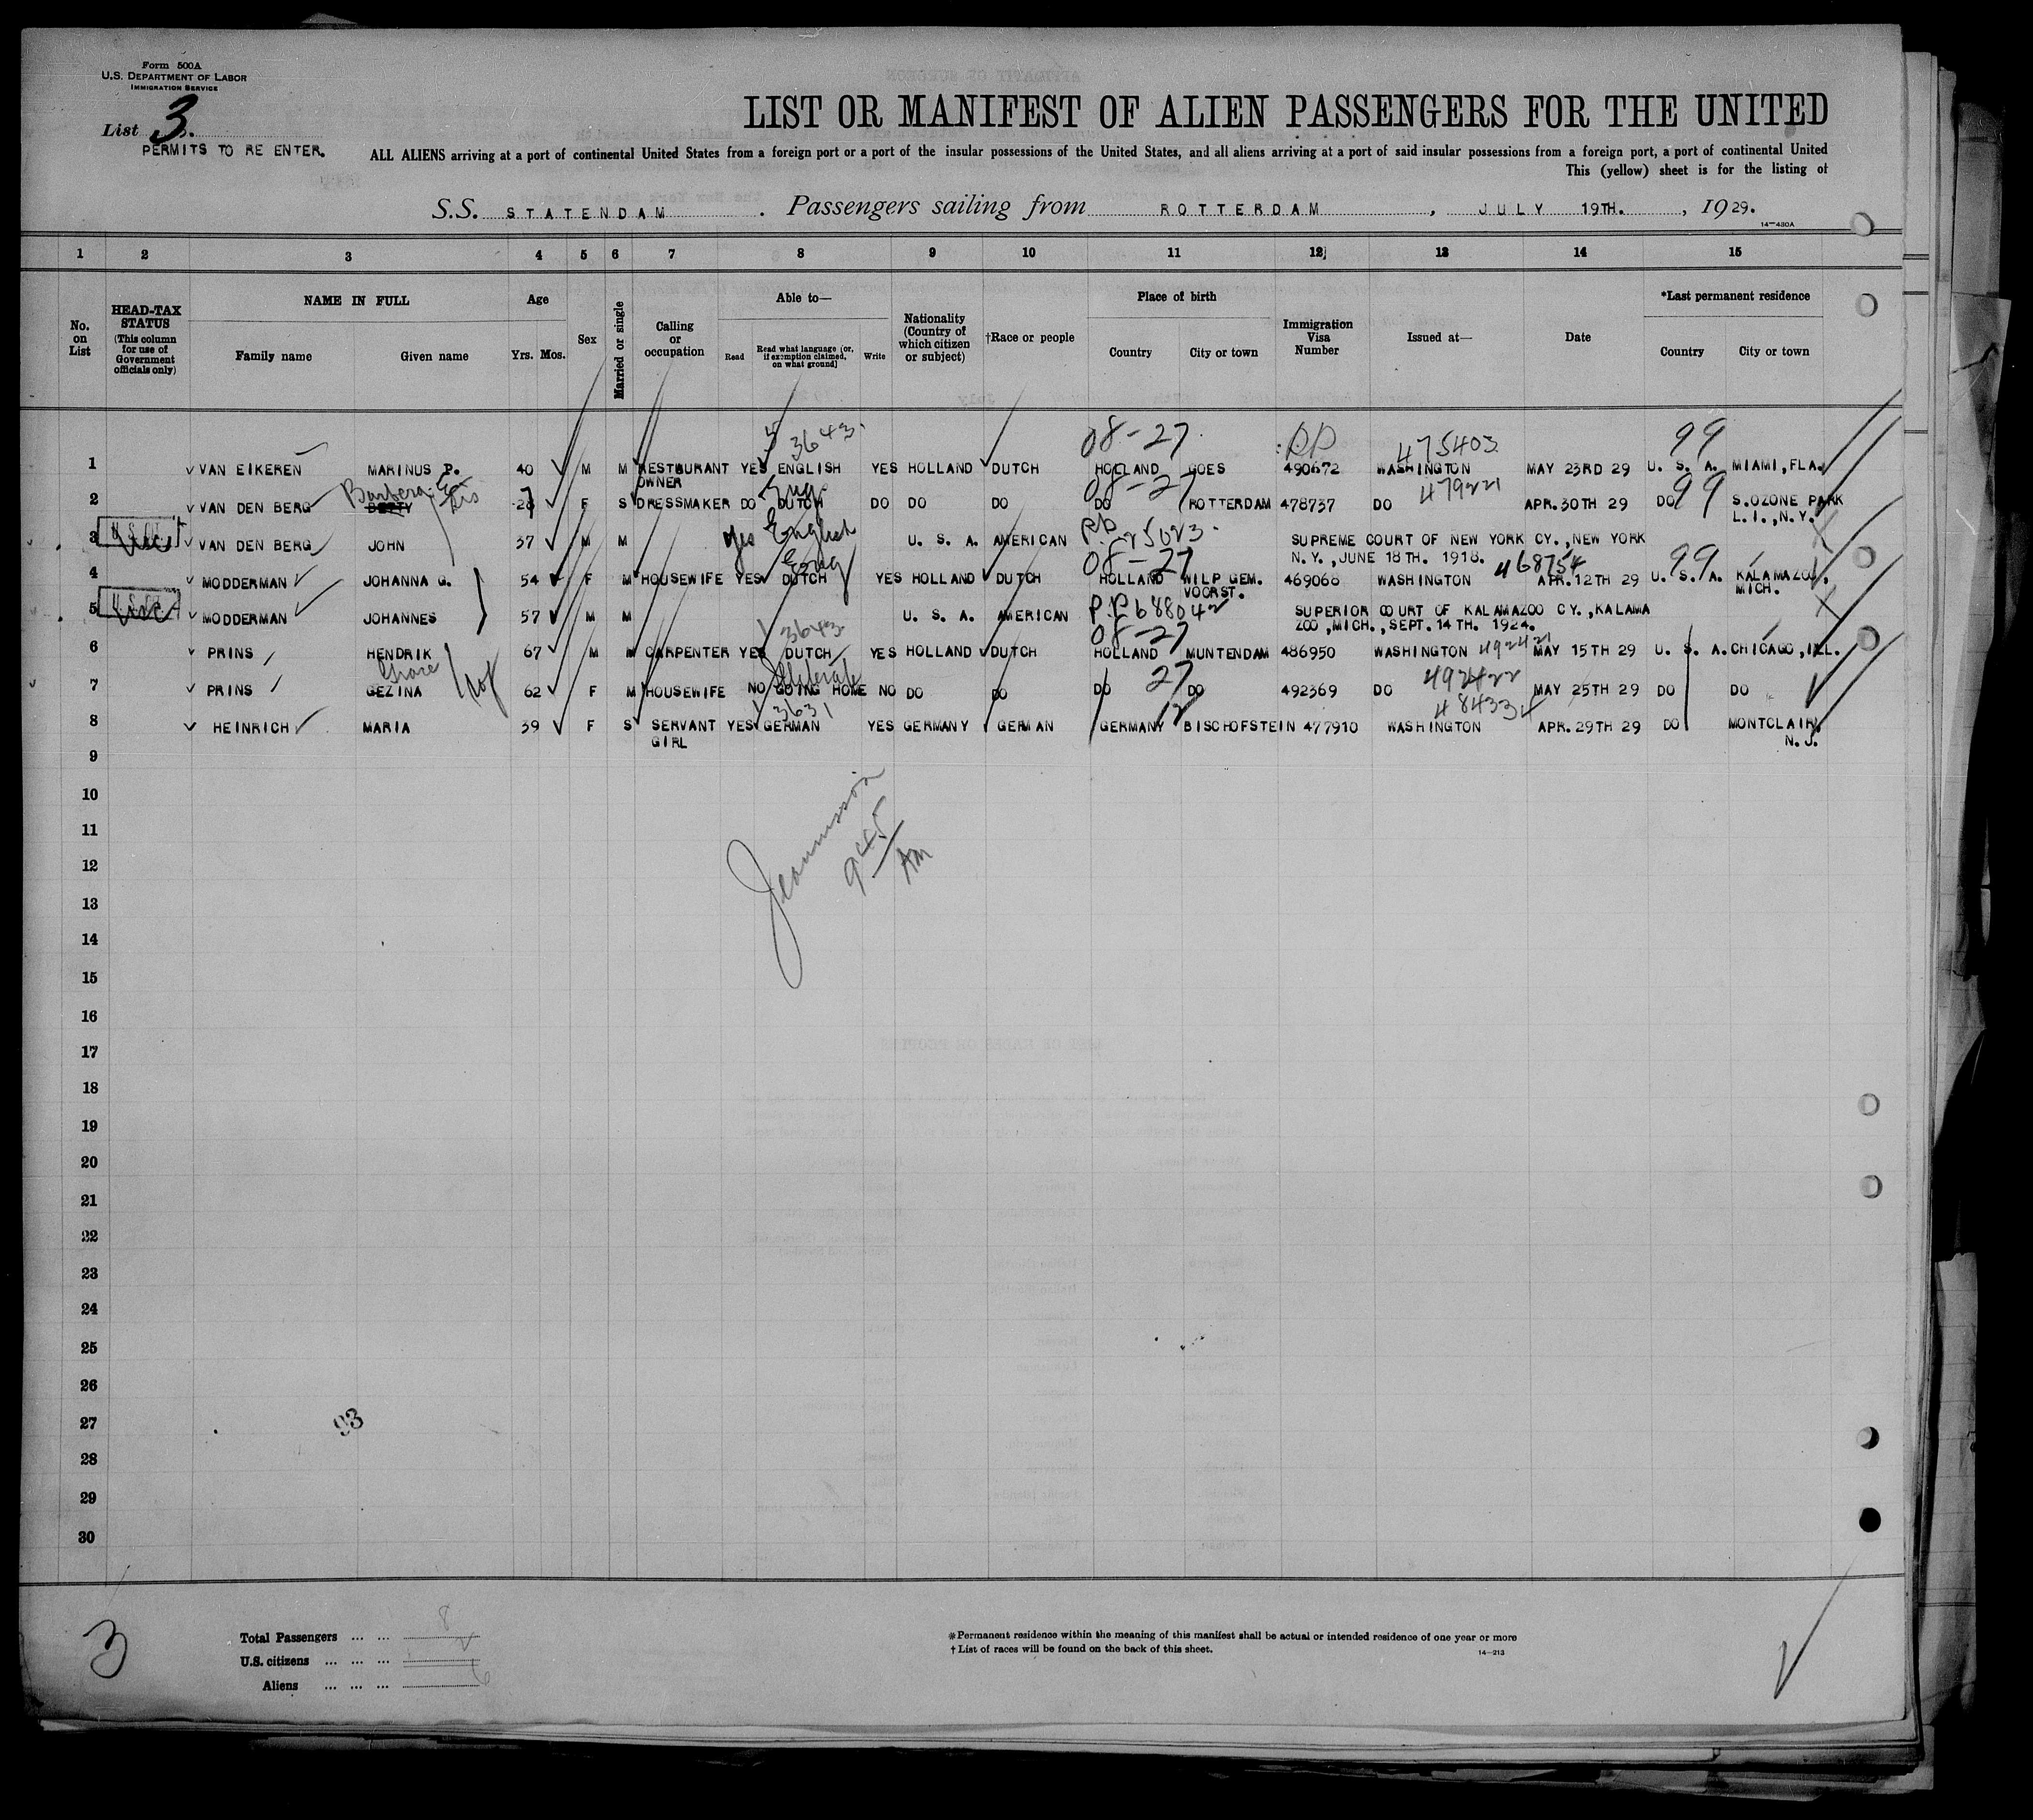 Form 500A
U.S. DEPARTMENT OF LABOR
IMMIGRATION SERVICE
List 3.
PERMITS TO RE ENTER.
LIST OR MANIFEST OF ALIEN PASSENGERS FOR THE UNITED
ALL ALIENS arriving at a port of continental United States from a foreign port or a port of the insular possessions of the United States, and all aliens arriving at a port of said insular possessions from a foreign port, a port of continental United
This (yellow) sheet is for the listing of
S.S. STATENDAM. Passengers sailing from ROTTERDAM, JULY 19TH., 1929.
14—430A
1 2 3 4 5 6 7 8 9 10 11 12 13 14 15
No. on List
HEAD-TAX STATUS (This column for use of Government officials only)
NAME IN FULL
Family name Given name
Age
Yrs. Mos.
Sex
Married or single
Calling or occupation
Able to—
Read Read what language (or, if exemption claimed, on what ground) Write
Nationality (Country of which citizen or subject)
†Race or people
Place of birth
Country City or town
Immigration Visa Number
Issued at—
Date
*Last permanent residence
Country City or town
3643 08-27 RP 475403 99
1 VAN EIKEREN MARINUS P. 40 M M RESTBURANT YES ENGLISH YES HOLLAND DUTCH HOLLAND GOES 490672 WASHINGTON MAY 23RD 29 U. S. A. MIAMI,FLA.
OWNER
Barbera Eng 08-27 47922 99
2 VAN DEN BERG BETTY 28 F S DRESSMAKER DO DUTCH DO DO DO DO ROTTERDAM 478737 DO APR.30TH 29 DO S.OZONE PARK
L.I.,N.Y.
yes English
3 VAN DEN BERG JOHN 37 M M U. S. A. AMERICAN SUPREME COURT OF NEW YORK CY.,NEW YORK
N.Y.,JUNE 18TH. 1918.
Eng 08-27 468754 99
4 MODDERMAN JOHANNA G. 54 F M HOUSEWIFE YES DUTCH YES HOLLAND DUTCH HOLLAND WILP GEM. 469068 WASHINGTON APR.12TH 29 U. S. A. KALAMAZOO,
VOORST. MICH.
5 MODDERMAN JOHANNES 57 M M U. S. A. AMERICAN P.P. 688042 SUPERIOR COURT OF KALAMAZOO CY.,KALAMA
ZOO,MICH.,SEPT.14TH. 1924.
3643 08-27
6 PRINS HENDRIK 67 M M CARPENTER YES DUTCH YES HOLLAND DUTCH HOLLAND MUNTENDAM 486950 WASHINGTON 492421 MAY 15TH 29 U. S. A. CHICAGO,ILL.
Grace Illiterate 27 492422
7 PRINS GEZINA 62 F M HOUSEWIFE NO GOING HOME NO DO DO DO DO 492369 DO MAY 25TH 29 DO DO
3631 12 484334
8 HEINRICH MARIA 39 F S SERVANT YES GERMAN YES GERMANY GERMAN GERMANY BISCHOFSTEIN 477910 WASHINGTON APR.29TH 29 DO MONTCLAIR,
GIRL N.J.
9
10
11
9 45 AM
12
13
14
15
16
17
18
19
20
21
22
23
24
25
26
27
93
28
29
30
3
Total Passengers ... ... 8
U.S. citizens ... ... ...
Aliens ... ... ... 6
*Permanent residence within the meaning of this manifest shall be actual or intended residence of one year or more
†List of races will be found on the back of this sheet.
14—213